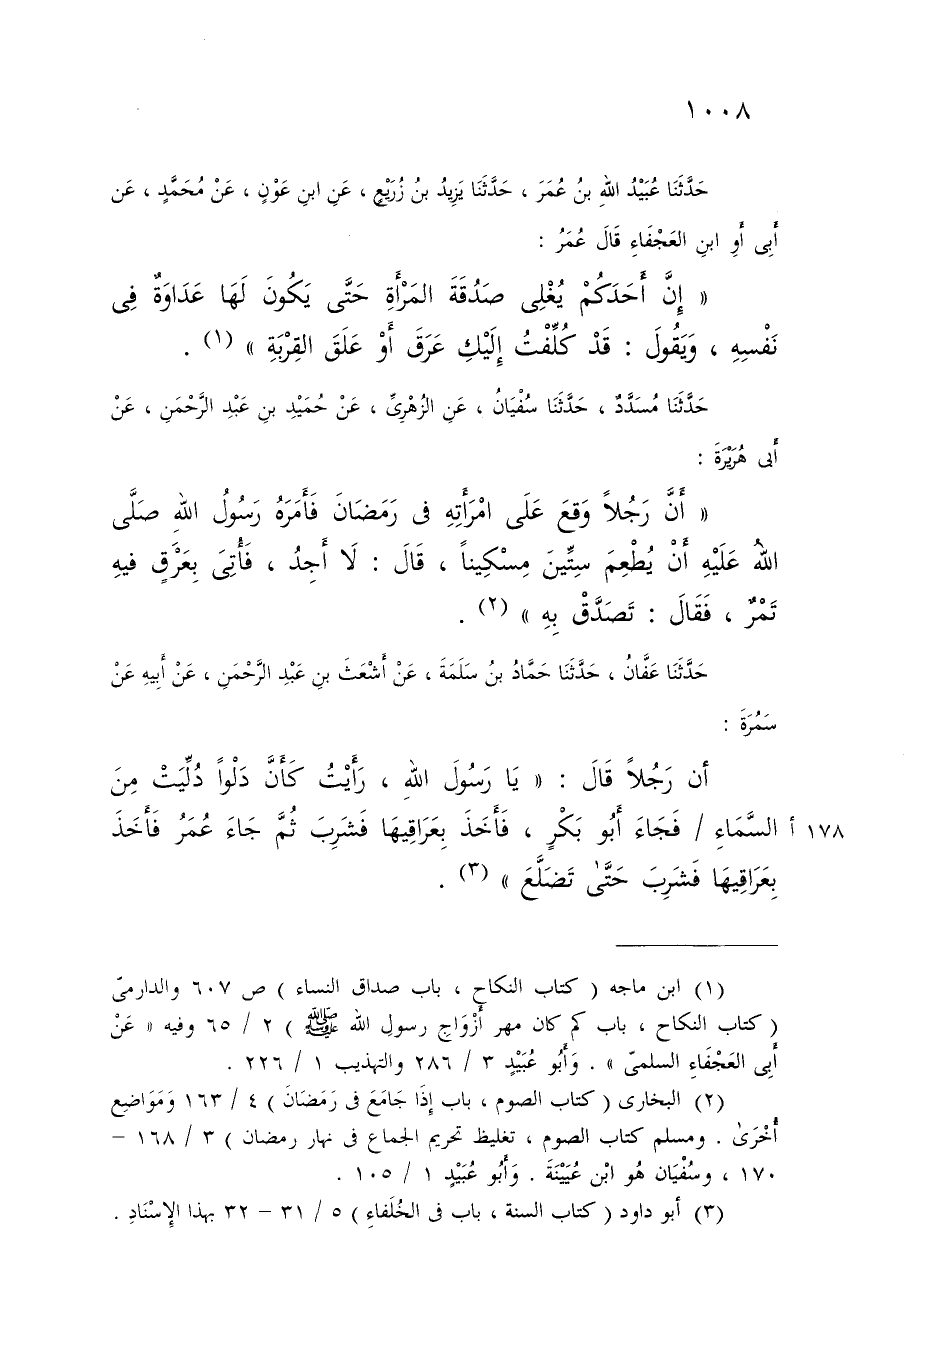 ١٠٠٨
حَدَّثَنَا عُبَيْدُ اللهِ بنُ عُمَرَ ، حَدَّثَنَا يَزِيدُ بنُ زُرَيْعٍ ، عَنِ ابنِ عَوْنٍ ، عَنْ مُحَمَّدٍ ، عَن
أَبِى أَوِ ابنِ العَجْفَاءِ قَالَ عُمَرُ :
« إِنَّ أَحَدَكُمْ يُغْلِى صَدُقَةَ المَرْأَةِ حَتَّى يَكُونَ لَهَا عَدَاوَةٌ فِى
نَفْسِهِ ، وَيَقُولَ : قَدْ كُلِّفْتُ إِلَيْكِ عَرَقَ أَوْ عَلَقَ القِرْبَةِ » (١) .
حَدَّثَنَا مُسَدَّدٌ ، حَدَّثَنَا سُفْيَانُ ، عَنِ الزُهْرِىِّ ، عَنْ حُمَيْدِ بنِ عَبْدِ الرَّحْمَنِ ، عَنْ
أَبى هُرَيْرَةَ :
« أَنَّ رَجُلاً وَقَعَ عَلَى امْرَأَتِهِ فى رَمَضَانَ فَأَمَرَهُ رَسُولُ اللهِ صَلَّى
اللهُ عَلَيْهِ أَنْ يُطْعِمَ سِتِّينَ مِسْكِيناً ، قَالَ : لَا أَجِدُ ، فَأُتِىَ بِعَرْقٍ فيهِ
تَمْرٌ ، فَقَالَ : تَصَدَّقْ بِهِ » (٢) .
حَدَّثَنَا عَفَّانُ ، حَدَّثَنَا حَمَّادُ بنُ سَلَمَةَ ، عَنْ أَشْعَثَ بنِ عَبْدِ الرَّحْمَنِ ، عَنْ أَبِيهِ عَنْ
سَمُرَةَ :
أن رَجُلاً قَالَ : « يَا رَسُولَ اللهِ ، رَأَيْتُ كَأَنَّ دَلْواً دُلِّيَتْ مِنَ
١٧٨ أ السَّمَاءِ / فَجَاءَ أَبُو بَكْرٍ ، فَأَخَذَ بِعَرَاقِيهَا فَشَرِبَ ثُمَّ جَاءَ عُمَرُ فَأَخَذَ
بِعَرَاقِيهَا فَشَرِبَ حَتَّى تَضَلَّعَ » (٣) .
(١) ابن ماجه ( كتاب النكاح ، باب صداق النساء ) ص ٦٠٧ والدارمىّ
( كتاب النكاح ، باب كم كان مهر أَزْوَاجِ رسولِ الله ﷺ ) ٢ / ٦٥ وفيه « عَنْ
أَبِى العَجْفَاءِ السلمىّ » . وَأَبُو عُبَيْدٍ ٣ / ٢٨٦ والتهذيب ١ / ٢٢٦ .
(٢) البخارى ( كتاب الصوم ، باب إِذَا جَامَعَ فى رَمَضَانَ ) ٤ / ١٦٣ وَمَوَاضِع
أُخْرَى . ومسلم كتاب الصوم ، تغليظ تحريم الجماع فى نهار رمضان ) ٣ / ١٦٨ –
١٧٠ ، وسُفْيَان هُو ابْن عُيَيْنَةَ . وَأَبُو عُبَيْدٍ ١ / ١٠٥ .
(٣) أبو داود ( كتاب السنة ، باب فى الخُلَفاءِ ) ٥ / ٣١ – ٣٢ بهذا الإِسْنَادِ .